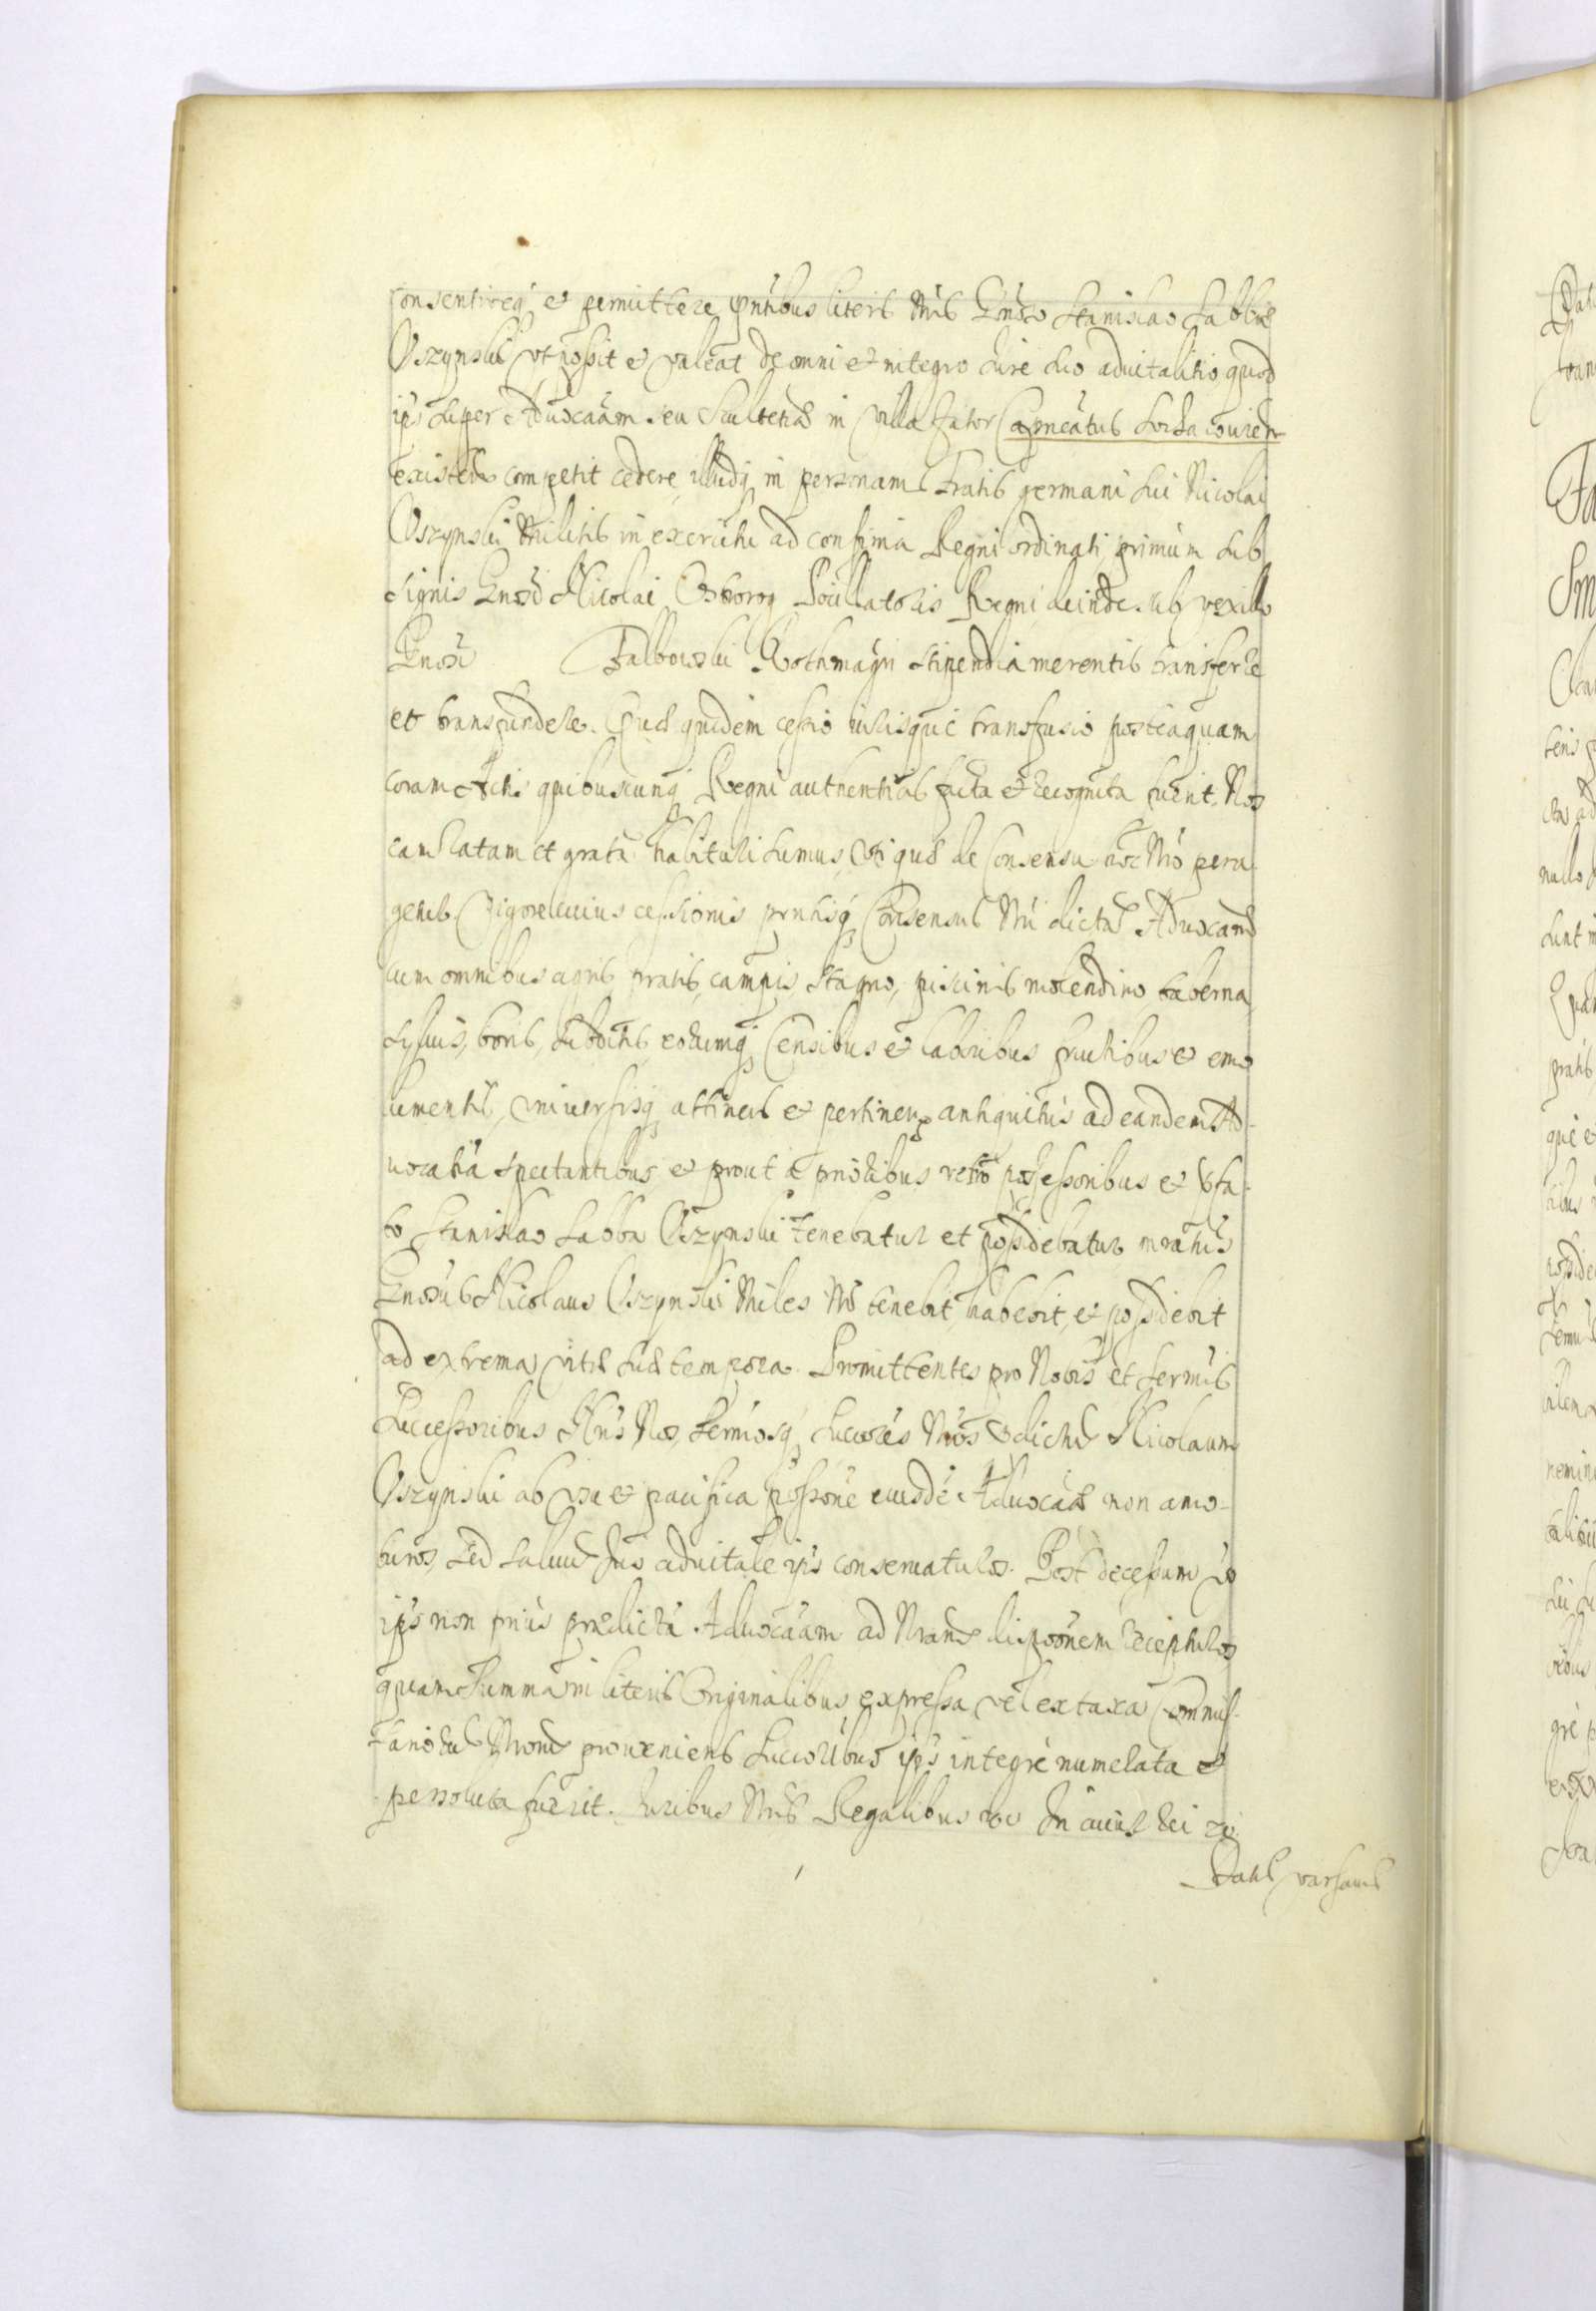 consentireq et permittere pntibus literis Nris Gnoso Stanislao Sabbae
Oszynski vt possit et valeat de omni et integro Iure suo aduitalitio quod
ipsi super Aduocatiam seu Scultetiam in villa Capneatus
existen competit cedere, illudq in personam fratris germani sui Nicolai
Oszynski Militis in exercitu ad confinia Regni ordinati, primum sub
signis Gnosi Nicolai Ostrorog Pocillatoris Regni deinde sub vexillo
Gnosi Falbowski Rothmagri stipendia merentis transferre
et transfundere. Quae quidem cessio iurisque transfusio posteaquam
coram Actis quibuscunq Regni authenticis facta et recognita fuerit, Nos
eam ratam et grata habituri sumus, vti quae de Consensu hoc Nro pera
geretur. Vigore cuius cessionis pntisq Consensus Nri dictam Aduocam
cum omnibus agris pratis, campis, stagno, piscinis molendino taberna
syluis, boris, subditis, eorumq Censibus et laboribus fructibus et emo
lumentis, vniuersisq attinen et pertinen antiquitus ad eandem Ad-
uocatia spectantibus et prout a prioribus retro possessoribus et
to Stanislao Sabba Oszynski tenebatur et possidebatur
Gnosus Nicolaus Oszynski Miles Nr tenebit, habebit, et possidebit
ad extrema vitae suae tempora. Promittentes pro Nobis et Sermis
Successoribus Nris Nos, Sermosq Succores Nros dictum Nicolaum
Oszynski ab vsu et pacifica possone eiusde Aduocae non amo-
turos, sed saluum Ius aduitale ipsi conseruaturos. Post decessum vo
ipsi non prius praedicta Aduocaam ad Nram disponem recepturos
quam Summa in literis Originalibus expressa vel ex taxa Commis-
sariorum Nrorum proueniens succoribus ipsi integre numerata et
persoluta fuerit. Iuribus Nris Regalibus In cuius rei
Datus varsaui